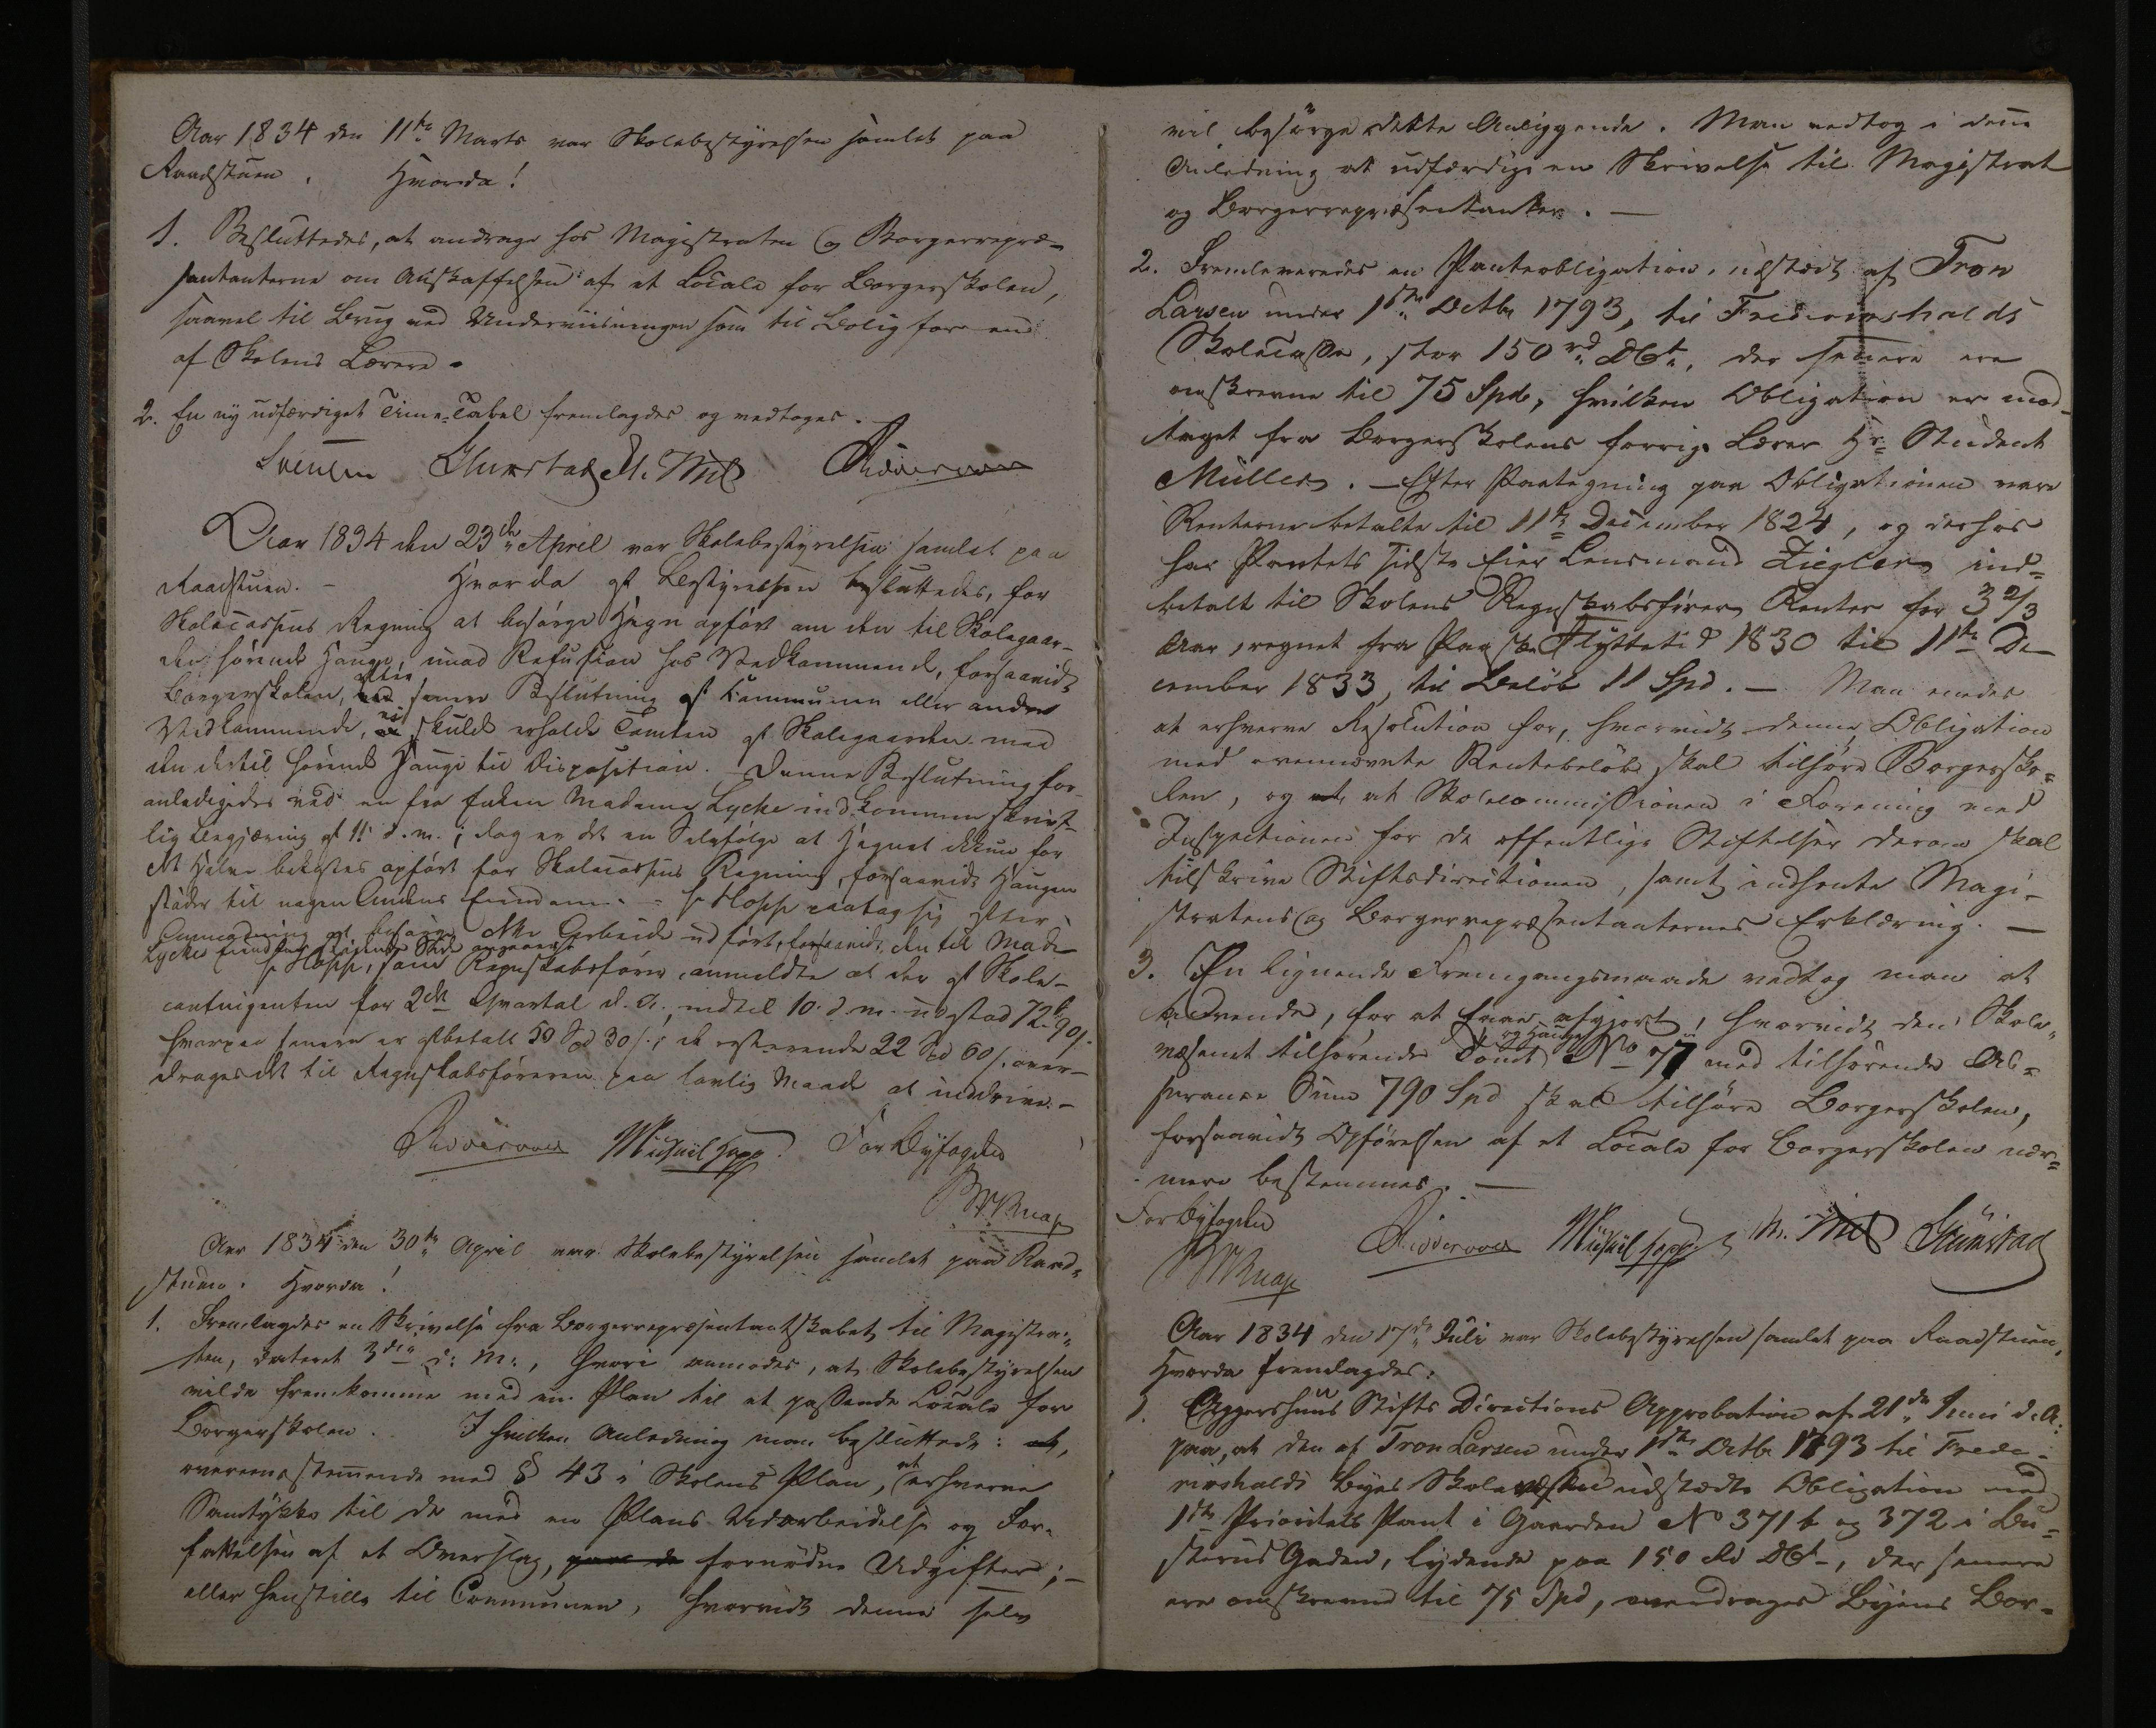 Aar 1834 den 11te Marts var Skolebestyrelsen samlet paa
Raadstuen. Hvorda!
1. Besluttedes, at andrage hos Magistraten og Borgerrepræ-
sentanterne om Anskaffelsen af et Locale for Borgerskolen,
saavel til Brug ved Underviisningen som til Bolig for en
af Skolens Lærere.
2. En ny udfærdiget Time-Tabel fremlagdes og vedtoges.
Grimstad
Aar 1834 den 23de April var Skolebestyrelsen samlet paa
Raadstuen. - Hvorda af Bestyrelsen besluttedes, for
Skolecassens Regning at besørge Hegn opført om den til Skolegaar-
den hørende Hauge, mod Refusion hos Vedkommende, forsaavidt
Borgerskolen, efter senere Beslutning af Communen eller andre
Vedkommende, ei skulde erholde Tomten af Skolegaarden med
den dertil hørende Hauge til Disposition. - Denne Beslutning for-
anledigedes ved en fra Enken Madame Lycke indkommen skrift-
lig Begjæring af 11 d. M.; dog er det en Selvfølge at Hegnet ikkun for
det Halve bekostes opført for Skolecassens Regning, forsaavidt Haugen
støder til nogen Andens Eiendom. - Hr Hopp paatog sig efter
Anmodning at besørge dette Arbeide udført, forsaavidt den til Mad:
Lyckes Eiendom stødende Side angaaer.
Hr Hopp, som Regnskabsfører anmeldte at der af Skole-
contingenten for 2det Qvartal d. A., indtil 10. d. M. udestod 72 90 s.
hvorpaa senere er afbetalt 50 Spd 30 s.; de resterende 22 Spd 60 s. over-
drages det til Regnskabsføreren paa lovlig Maade at inddrive. -
Michael Hopp. For Byfogden
Knap
Aar 1834 den 30te April var Skolebestyrelsen samlet paa Raad-
stuen. Hvorda!
1. Fremlagdes en Skrivelse fra Borgerrepræsentantskabet til Magistra-
ten, dateret 3die d: M:, hvori anmodes, at Skolebestyrelsen
vilde fremkomme med en Plan til et passende Locale for
Borgerskolen. I hvilken Anledning man besluttede: at,
overeensstemmende med § 43 i Skolens Plan, at erhverve
Samtykke til de med en Plans Udarbeidelse og For-
fattelsen af et Overslag, fornødne Udgifter; -
eller henstille til Communen, hvorvidt denne selv
vil besørge dette Anliggende. Man vedtog i denne
Anledning at udfærdige en Skrivelse til Magistrat
og Borgerrepræsentanter. -
2. Fremleveredes en Panteobligation, udstædt af Tron
Larsen under 1ste Octbr 1793, til Fredericshalds
Skolecasse, stor 150 rd DCt., der senere ere
omskrevne til 75 Spd, hvilken Obligation er mod-
taget fra Borgerskolens forrige Lærer Hr Student
Müller. - Efter Paategning paa Obligationen vare
Renterne betalte til 11te December 1824, og derhos
har Pantets sidste Eier Lensmand Ziegler ind-
betalt til Skolens Regnskabsfører Renter for 3 2/3
Aar, regnet fra Paaske Flyttetid 1830 til 11te De-
cember 1833, til Beløb 11 Spd. - Man enedes
at erhverve Resolution for, hvorvidt denne Obligation
med ovennævnte Rentebeløb skal tilhøre Borgersko-
len, og at Skolecommissionen i Forening med
Inspectionen for de offentlige Stiftelser derom skal
tilskrive Stiftsdirectionen, samt indhente Magi-
stratens og Borgerrepræsentanternes Erklæring. -
3. En lignende Fremgangsmaade vedtog man at
anvende, for at faae afgjort, hvorvidt den Skole-
væsenet tilhørende Tomt og Hauge No 77 med tilhørende As-
surance Sum 790 Spd skal tilhøre Borgerskolen,
forsaavidt Opførelsen af et Locale for Borgerskolen nær-
mere bestemmes. -
For Byfogden
Knap Michael Hopp Grimstad
Aar 1834 den 17de Juli var Skolebestyrelsen samlet paa Raadstuen,
Hvorda fremlagdes:
1. Aggershuus Stifts Directions Approbation af 21de Juni d. A:
paa, at den af Tron Larsen under 1ste Octbr 1793 til Frede-
ricshalds Byes Skolevæsen udstædte Obligation med
1ste Prioritets Pant i Gaarden No 371 b og 372 i
Gaden, lydende paa 150 rd DCt, der senere
ere omskrevne til 75 Spd, overdrages Byens Bor-